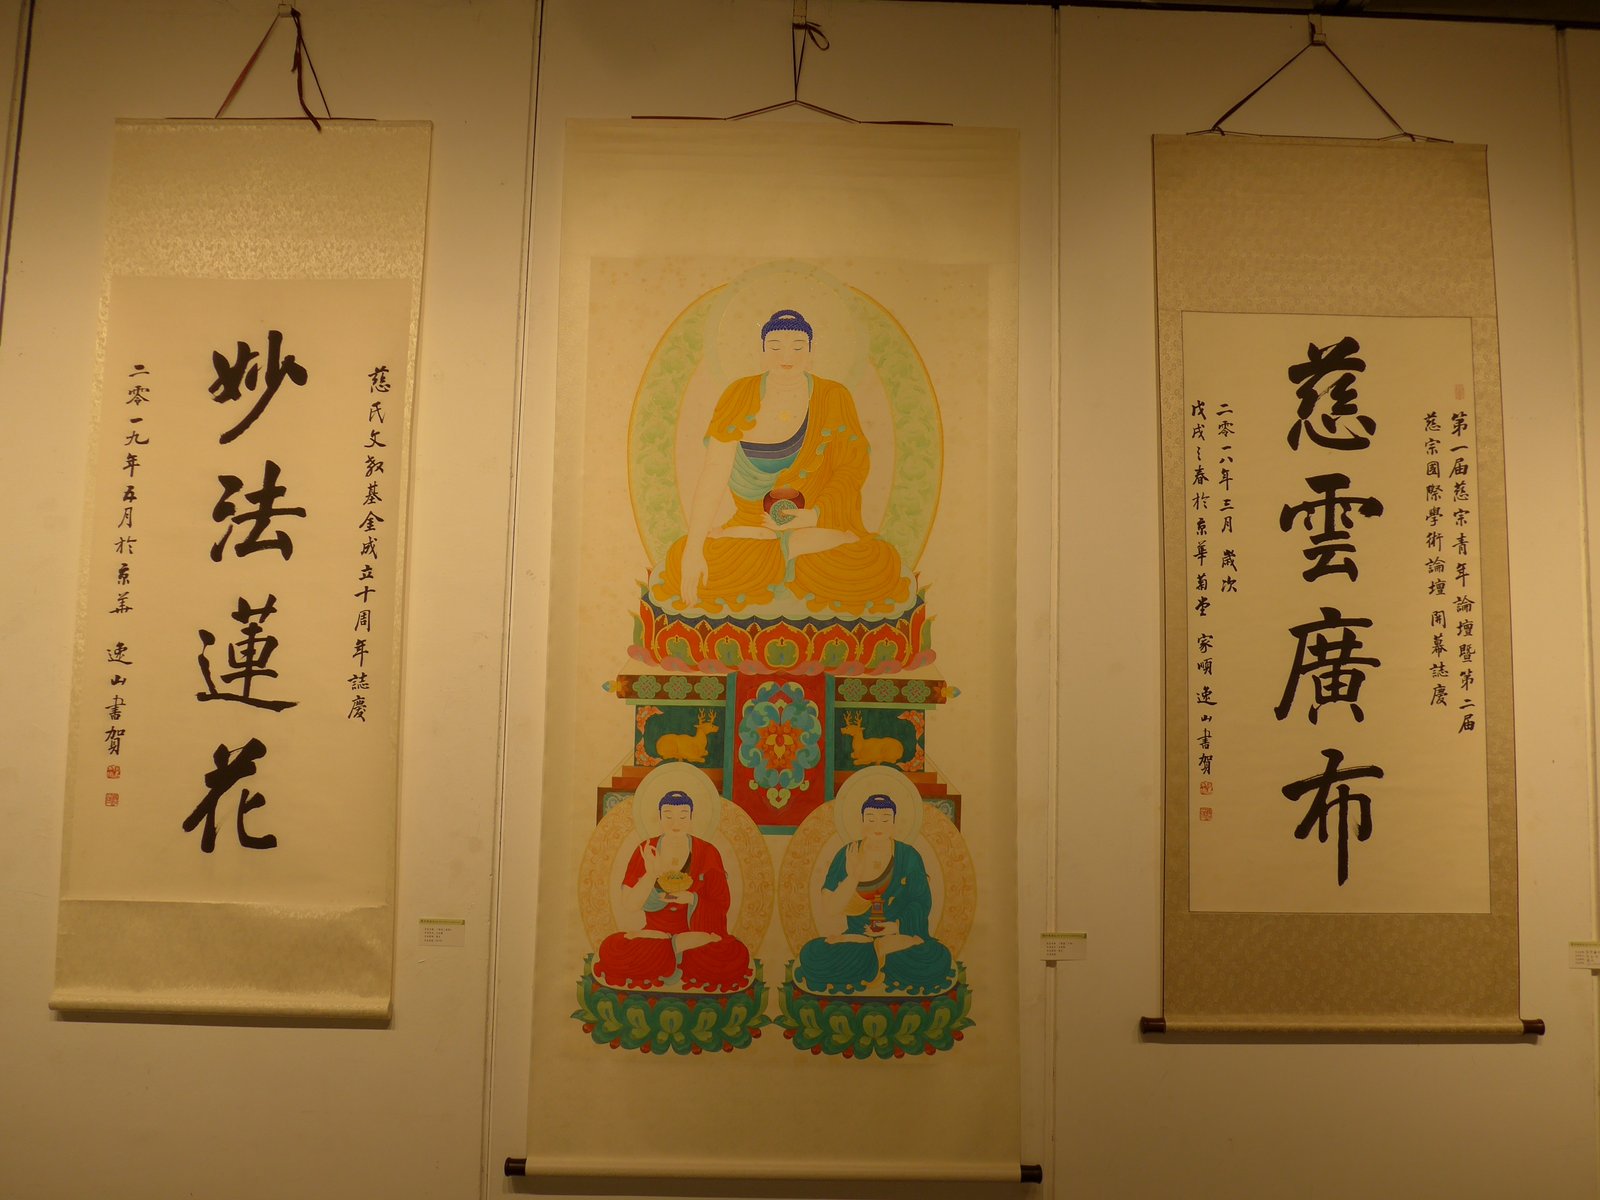 慈氏文教基金成立十周年誌慶
妙法蓮花
二零一九年五月於京華 逸山書賀
第一届慈宗青年論壇暨第二届
慈宗國際學術論壇開幕誌慶
慈雲廣布
二零一八年三月 歲次
戊戌之春於京華菊堂 家順 逸山書賀